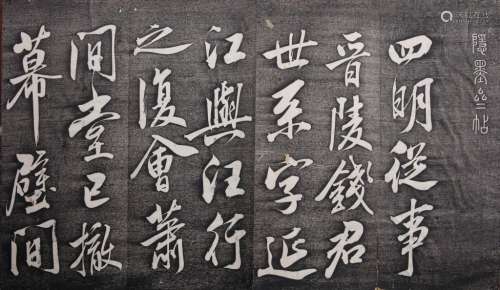 隱墨帖
四明從事
晉陵錢君
世系字延
江與汪行
之復會蕭
間堂已撤
幕壁間